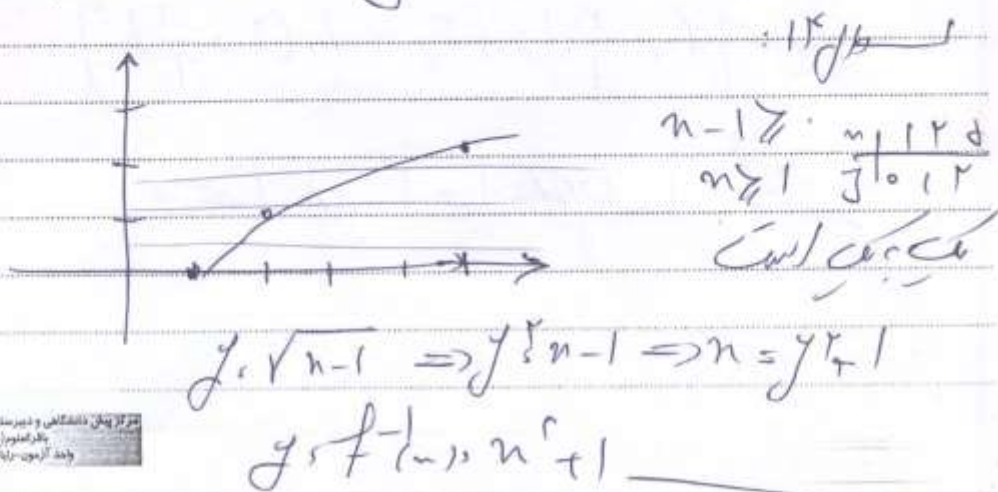 سوال ۱۴:
x - 1 ≥ 0
x ≥ 1
x | 1 ۲ ۵
y | 0 1 ۲
یک به یک است
y = √x-1 ⇒ y² = x - 1 ⇒ x = y² + 1
y = f⁻¹(x) = x² + 1
مرکز پیش دانشگاهی و دبیرستان
باقرالعلوم
واحد آزمون